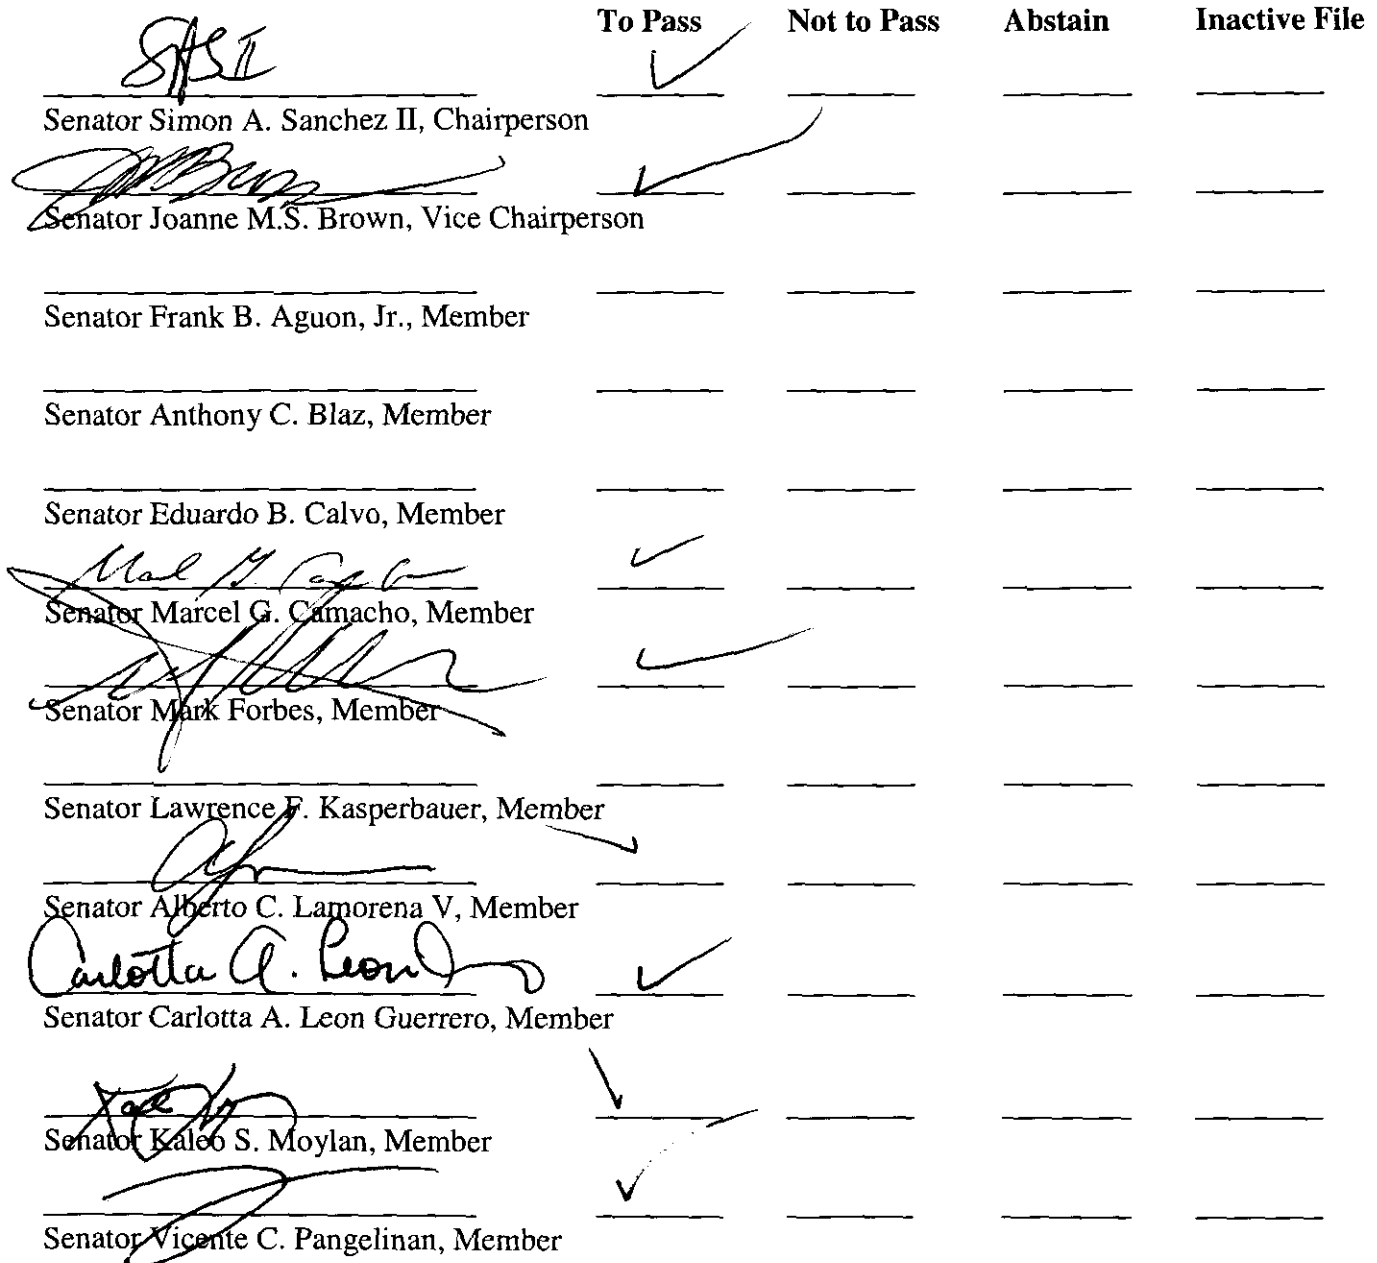 To Pass Not to Pass Abstain Inactive File
SAS II
Senator Simon A. Sanchez II, Chairperson
Senator Joanne M.S. Brown, Vice Chairperson
Senator Frank B. Aguon, Jr., Member
Senator Anthony C. Blaz, Member
Senator Eduardo B. Calvo, Member
Senator Marcel G. Camacho, Member
Senator Mark Forbes, Member
Senator Lawrence F. Kasperbauer, Member
Senator Alberto C. Lamorena V, Member
Carlotta A. Leon
Senator Carlotta A. Leon Guerrero, Member
Senator Kaleo S. Moylan, Member
Senator Vicente C. Pangelinan, Member